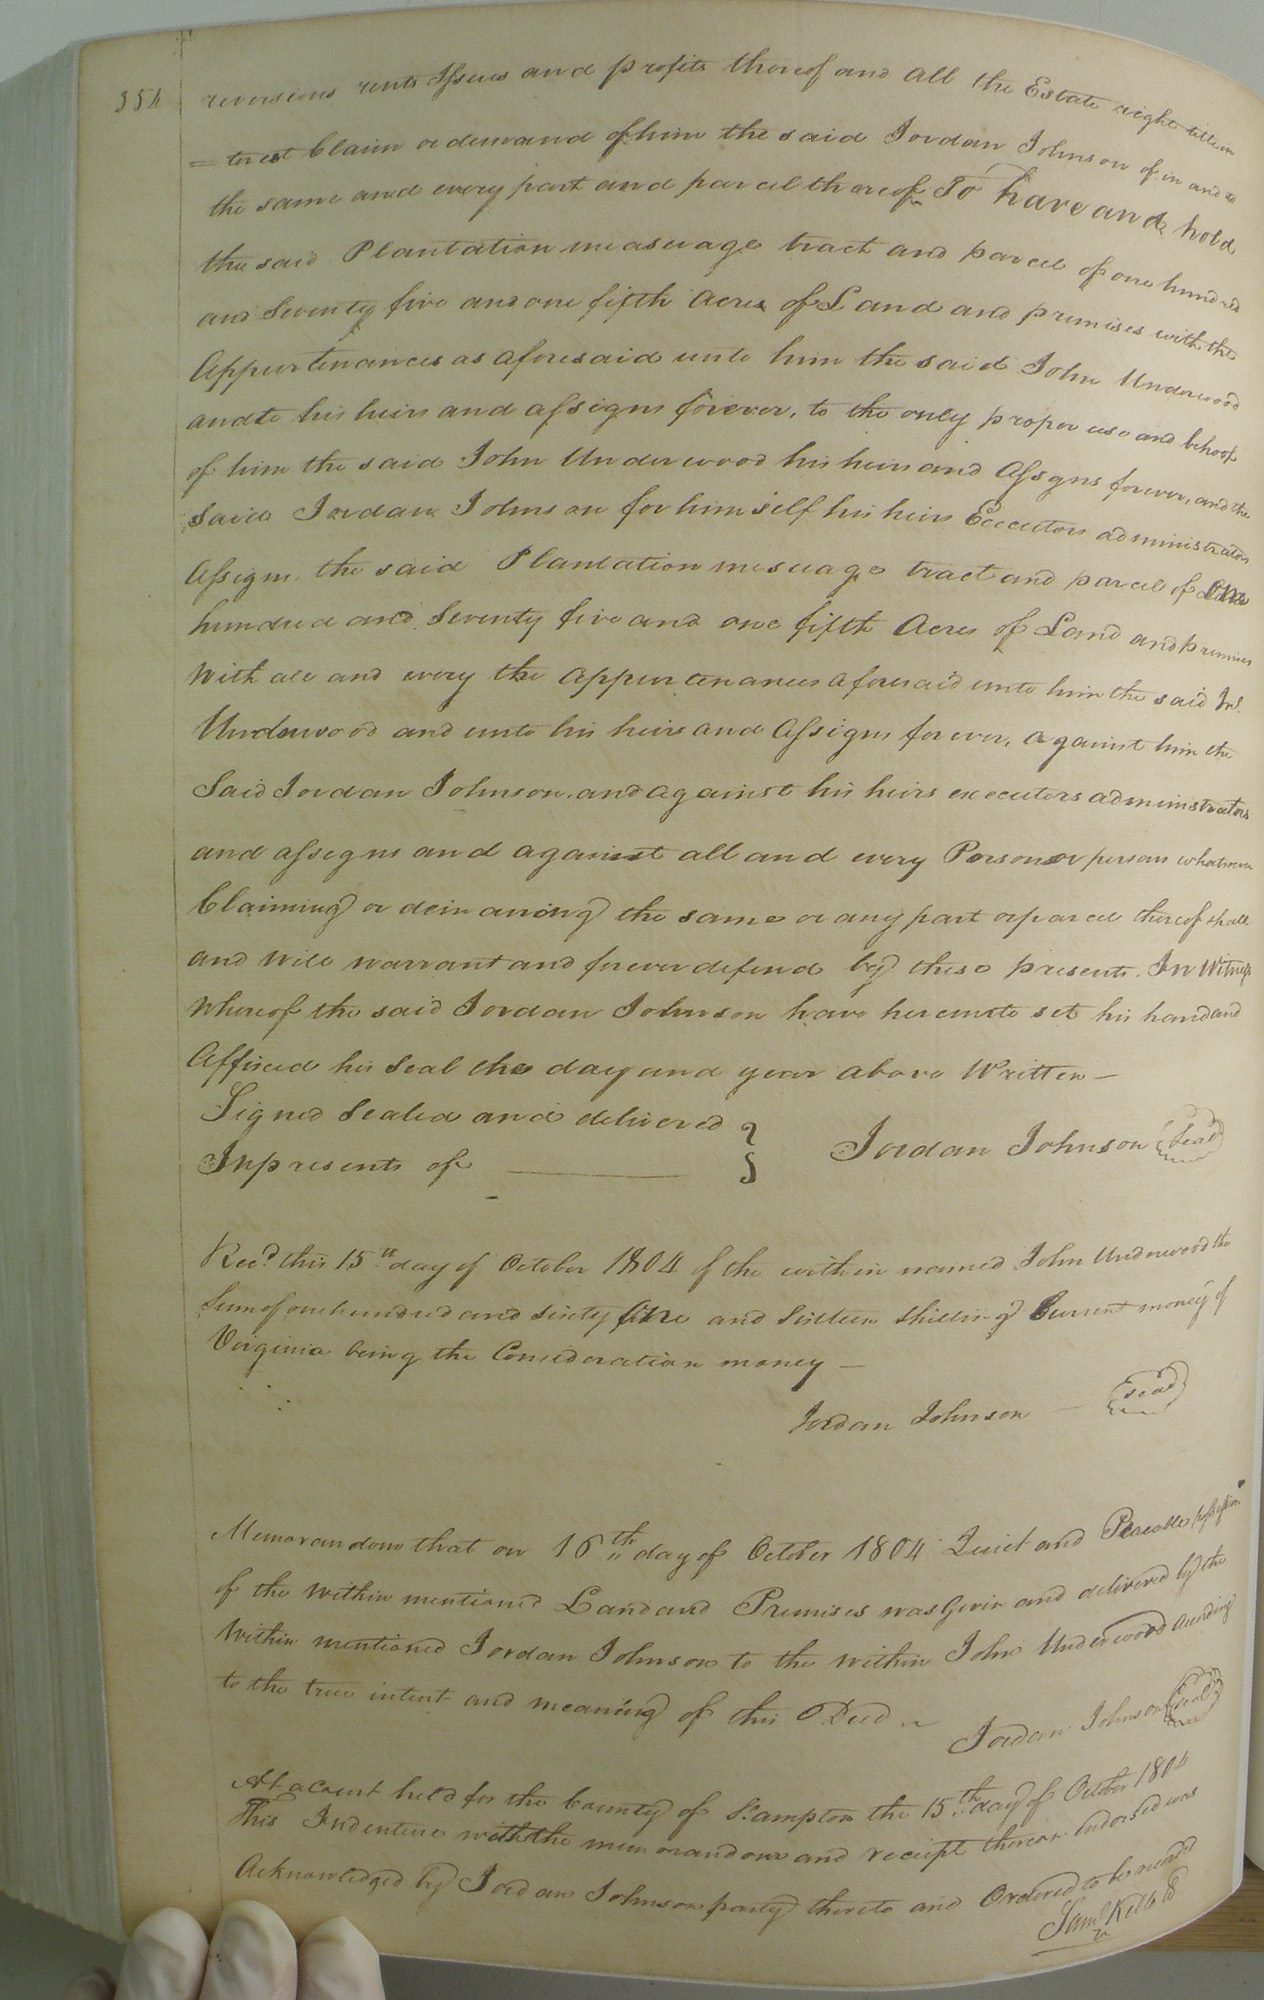 354
reversions rents Issues and profits thereof and all the Estate right title in
= terest Claim or demand of him the said Jordan Johnson of in and to
the same and every part and parcel thereof To have and hold
the said Plantation measuage tract and parcel of one hundred
and Seventy five and one fifth Acres of Land and premises with the
Appurtenances as aforesaid unto him the said John Underwood
and to his heirs and assigns forever, to the only proper use and behoof
of him the said John Underwood his heirs and Assgns forever, and the
said Jordan Johnson for himself his heirs Executors administrators
Assigns the said Plantation mesuage tract and parcel of One
hundred and Seventy five and one fifth Acres of Land and premises
With all and every the appurtenances aforesaid unto him the said Jno.
Underwood and unto his heirs and Assigns forever, against him the
Said Jordan Johnson and against his heirs executors administrators
and assigns and against all and every Person or persons whatsoever
Claiming or demanding the same or any part or parcel thereof shall
and will warrant and forever defend by these presents. In Witness
Whereof the said Jordan Johnson have hereunto set his hand and
Affixed his Seal the day and year above Written —
Signed Sealed and delivered
In presents of
Jordan Johnson Seal
Recd. this 15th day of October 1804 of the within named John Underwood the
Sum of one hundred and sixty five and Sixteen Shilling Current money of
Virginia being the Consideration money —
Jordan Johnson — seal
Memorandom that on 16th day of October 1804 Quiet and Peaceable possession
of the Within mentioned Land and Premises was Givin and delivered by the
Within mentioned Jordan Johnson to the Within John Underwood According
to the true intent and meaning of this Deed. ~
Jordan Johnson Seal
At a Court held for the County of So.ampton the 15th day of October 1804
This Indenture with the memorandom and receipt thereon Endorsed was
Acknowledged by Jordan Johnson party thereto and Ordered to be record.
Saml. Kello CC